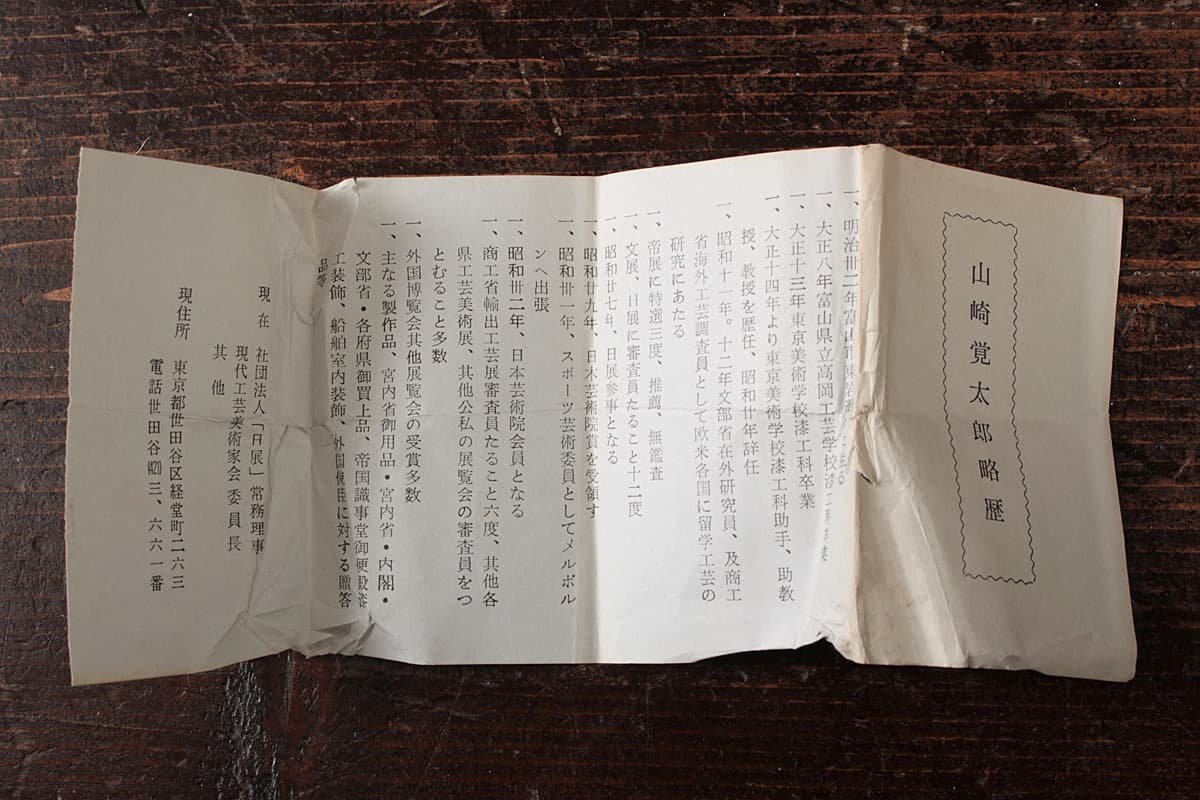 山崎覚太郎略歴
一、明治卅二年富山市東岩瀬
一、大正八年富山県立高岡工芸学校漆工科卒業
一、大正十三年東京美術学校漆工科卒業
一、大正十四年より東京美術学校漆工科助手、助教
授、教授を歴任、昭和廿年辞任
一、昭和十一年。十二年文部省在外研究員、及商工
省海外工芸調査員として欧米各国に留学工芸の
研究にあたる
一、帝展に特選三度、推薦、無鑑査
一、文展、日展に審査員たること十二度
一、昭和廿七年、日展参事となる
一、昭和廿九年、日本芸術院賞を受領す
一、昭和卅一年、スポーツ芸術委員としてメルボル
ンへ出張
一、昭和卅二年、日本芸術院会員となる
一、商工省輸出工芸展審査員たること六度、其他各
県工芸美術展、其他公私の展覧会の審査員をつ
とむること多数
一、外国博覧会其他展覧会の受賞多数
一、主なる製作品、宮内省御用品・宮内省・内閣・
文部省・各府県御買上品、帝国議事堂御便殿漆
工装飾、船舶室内装飾、外国使臣に対する贈答
品等
現在 社団法人「日展」常務理事
現代工芸美術家会委員長
其他
現住所 東京都世田谷区経堂町二六三
電話世田谷(420)三、六六一番